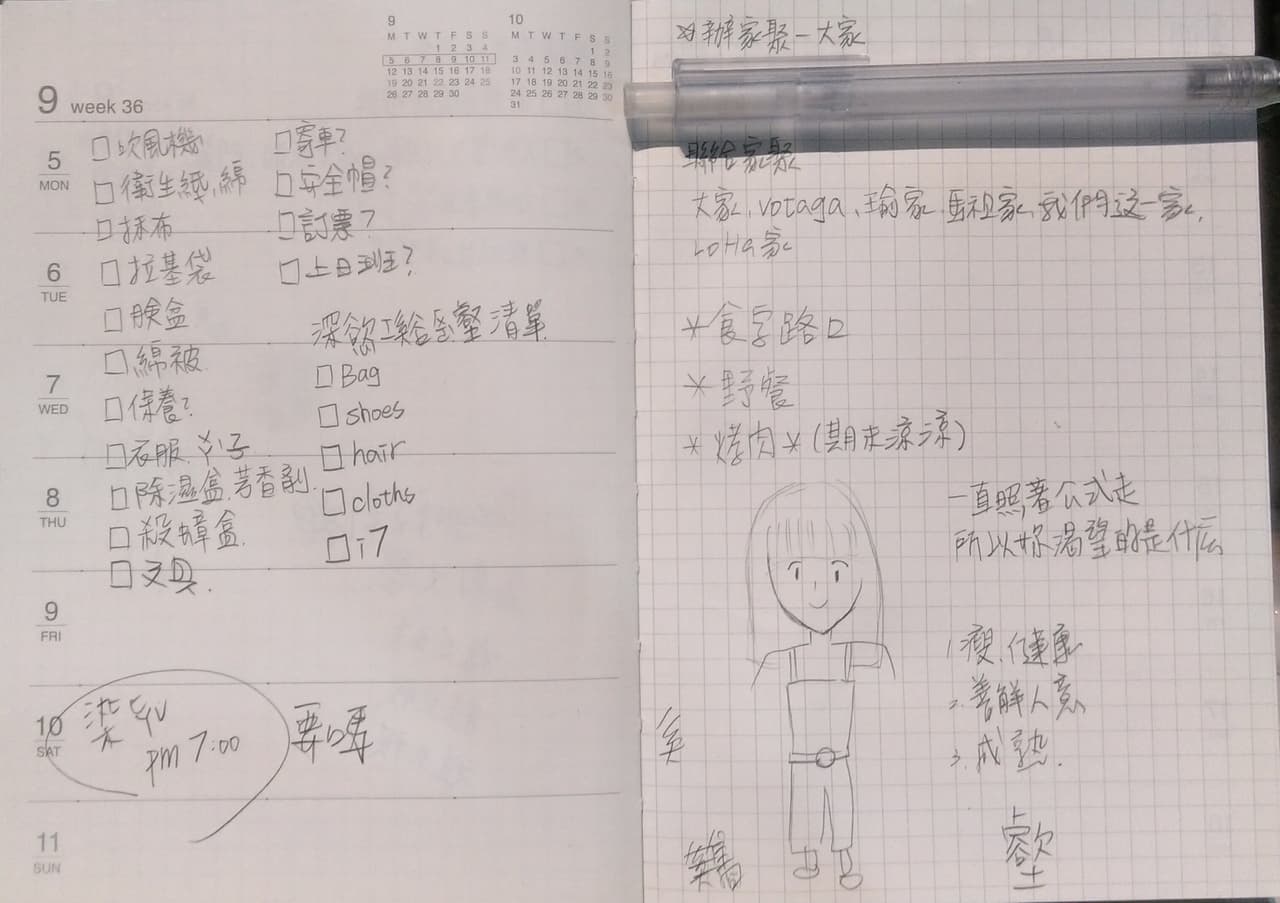 9 week 36
9
M T W T F S S
1 2 3 4
5 6 7 8 9 10 11
12 13 14 15 16 17 18
19 20 21 22 23 24 25
26 27 28 29 30
10
M T W T F S S
1 2
3 4 5 6 7 8 9
10 11 12 13 14 15 16
17 18 19 20 21 22 23
24 25 26 27 28 29 30
31
5 MON
6 TUE
7 WED
8 THU
9 FRI
10 SAT
11 SUN
□吹風機
□衛生綿
□抹布
□垃基袋
□臉盆
□綿被
□保養?
□衣服 ㄨˇ子
□除濕盒、芳香劑.
□殺蟑盒
□文具.
□寄車?
□安全帽?
□訂票?
□上日班?
清單
□Bag
□shoes
□hair
□cloths
□i7
染
pm 7:00
要嗎
辦家聚-大家
聯合家聚
大家、votaga、瑜家、馬祖家、我們這一家、
LoHa家
*食字路口
*野餐
*烤肉*(期末涼涼)
一直照著公式走
所以妳渴望的是什么
1.瘦、健康
2.善解人意
3.成熟.